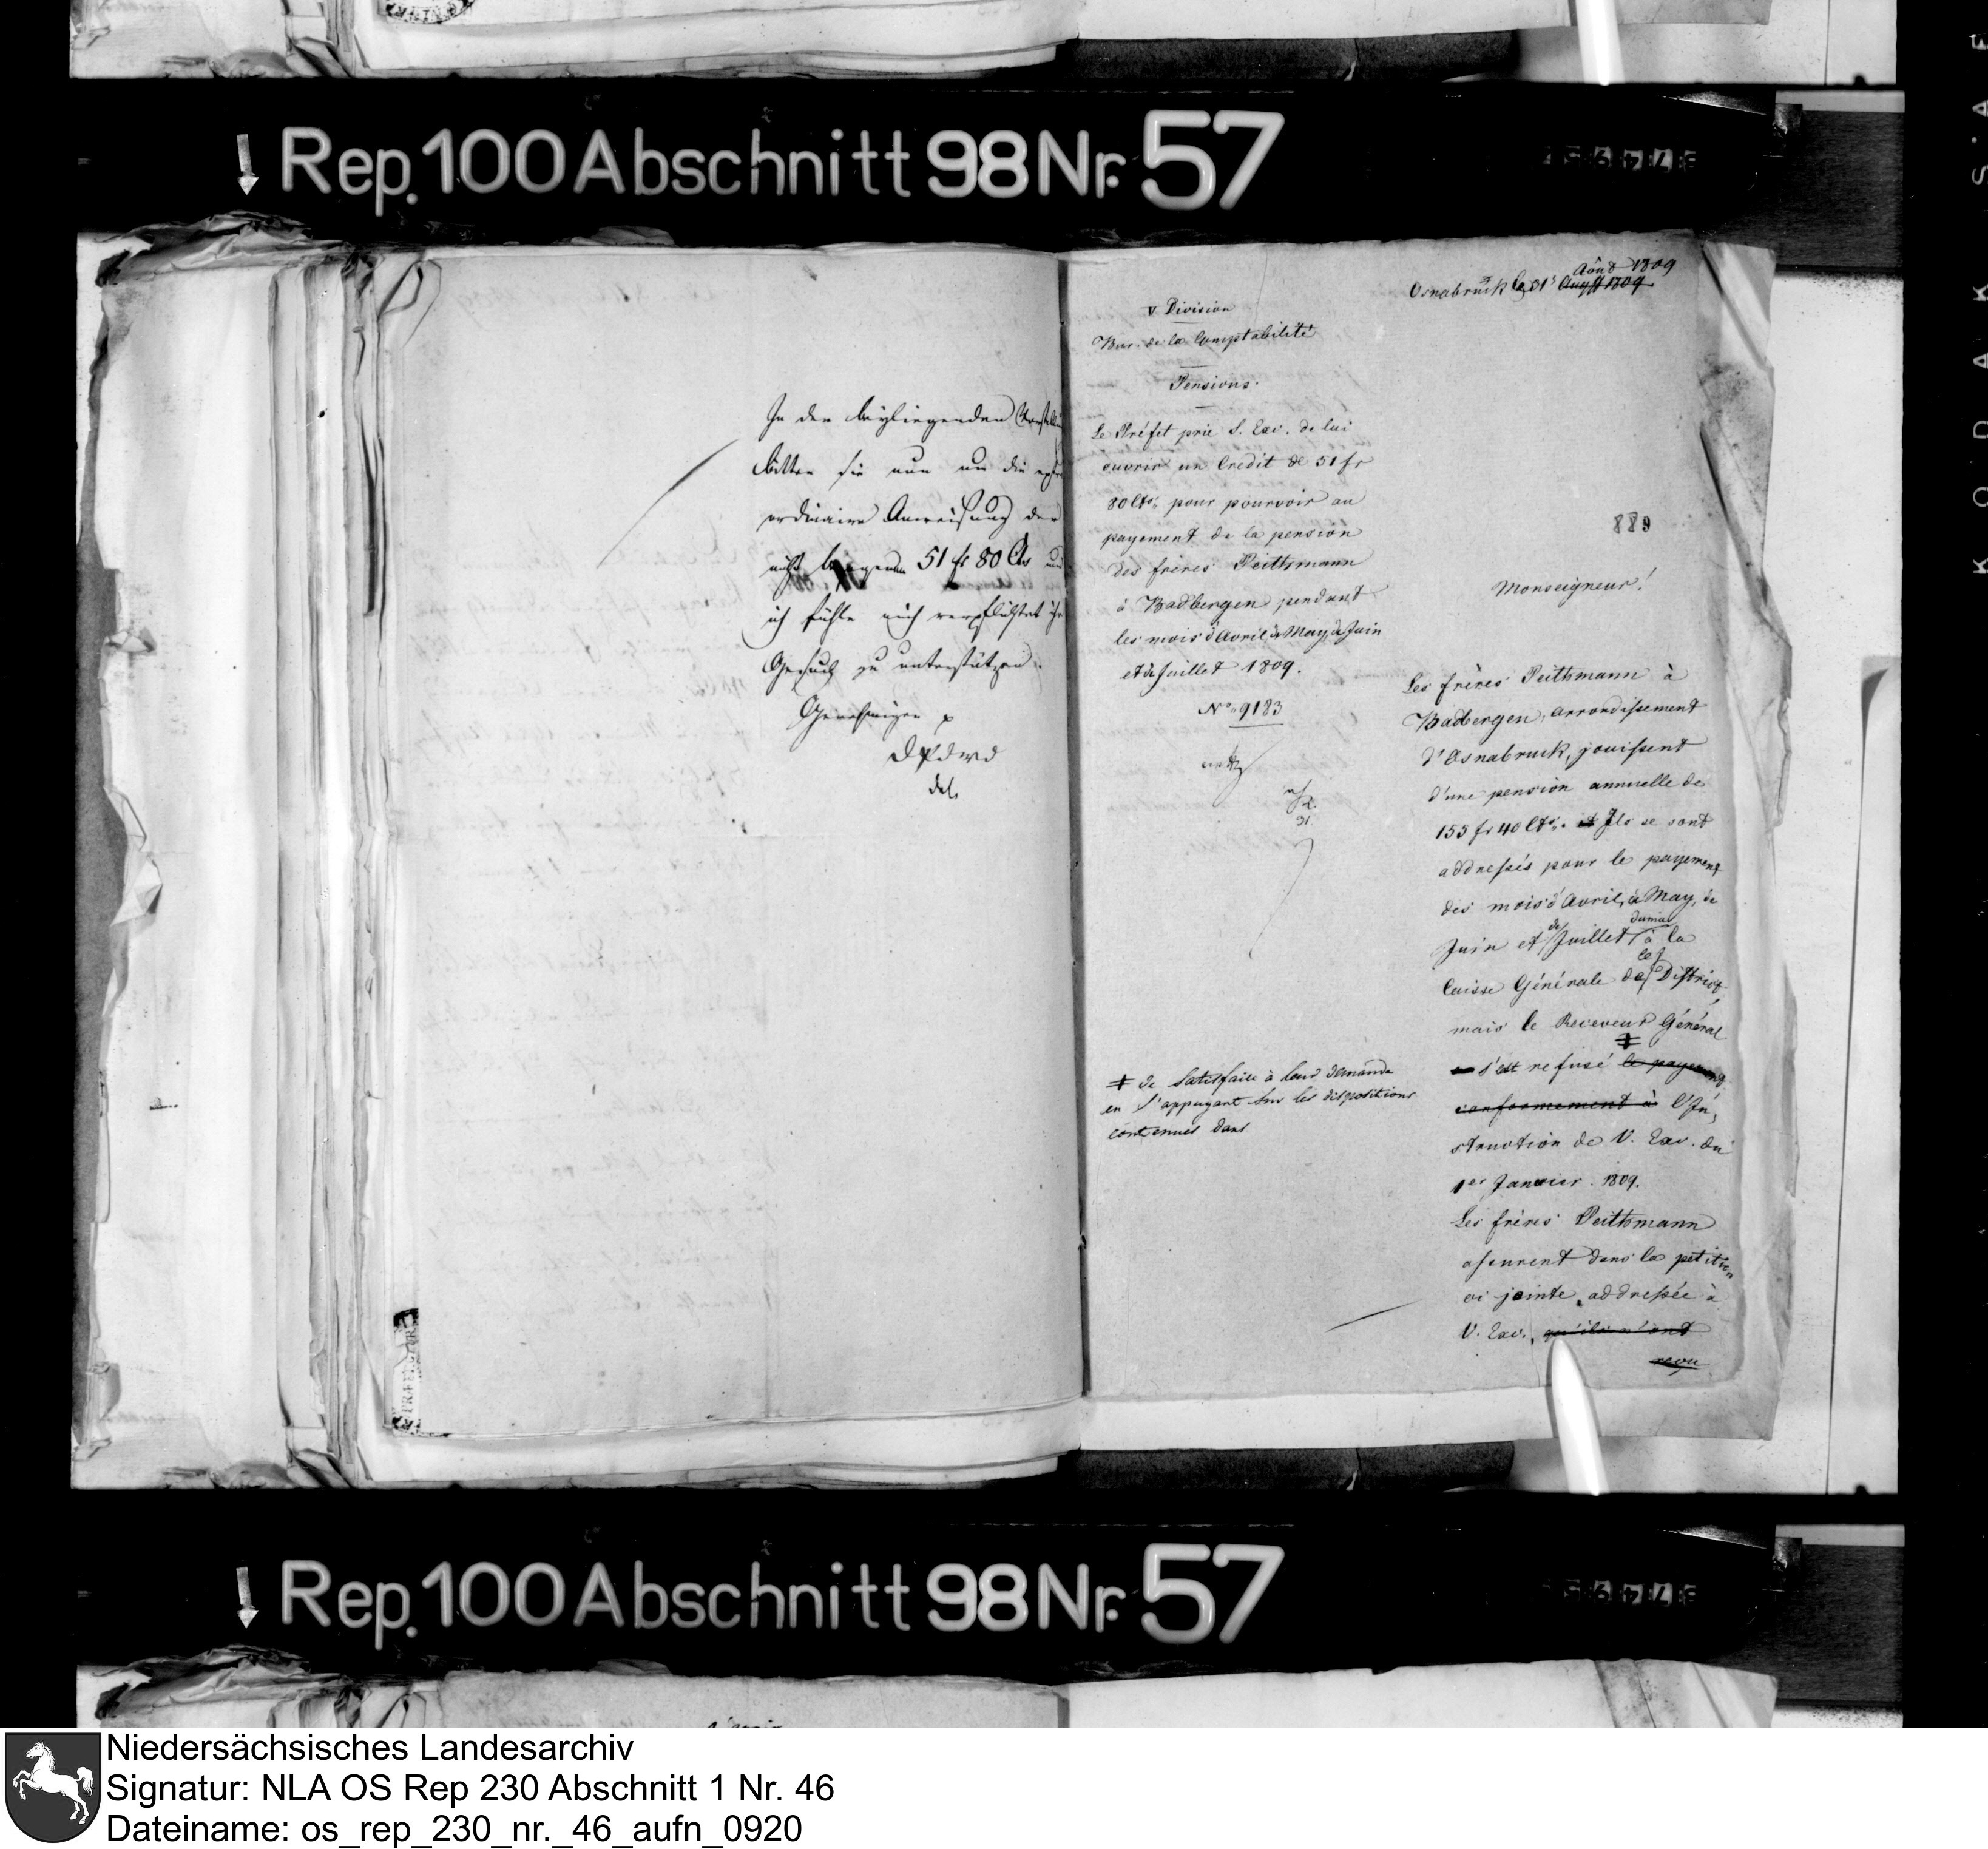 Rep. 100 Abschnitt 98 Nr. 57
In der beyliegenden
bitten sie nun um die
ordinaire Anweisung der
51 fr 80 Cts
ich fühle mich verpflichtet ihr
Gesuch zu unterstützen.
Genehmigen p
Osnabrück le 31 Augst 1809
Août 1809
V Division
Bur. de la Comptabilité
Pensions.
Le Préfet prie S. Exc. de lui
ouvrir un Credit de 51 fr
80 Cts. pour pourvoir au
payement de la pension
des frères Peithmann
à Badbergen pendant
les mois d'Avril, de May, de Juin
et de Juillet 1809.
No. 9183
889
Monseigneur!
Les frères Peithmann à
Badbergen, arrondissement
d'Osnabruck, jouissent
d'une pension annuelle de
155 fr 40 Cts. Ils se sont
addressés pour le payement
des mois d'Avril, de May, de
Juin et de Juillet à la
Caisse Générale de District,
mais le Receveur Général
s'est refusé le payement
conformement à l'In-
struction de V. Exc. du
1er Janvier 1809.
Les frères Peithmann
assurent dans la petition
ci jointe, addressée à
V. Exc., qu'ils n'ont
reçu
ǂ de satisfaire à leur demande
en s'appuyant sur les dispositions
contenues dans
Rep. 100 Abschnitt 98 Nr. 57
KODAK SAFE
Niedersächsisches Landesarchiv
Signatur: NLA OS Rep 230 Abschnitt 1 Nr. 46
Dateiname: os_rep_230_nr._46_aufn_0920